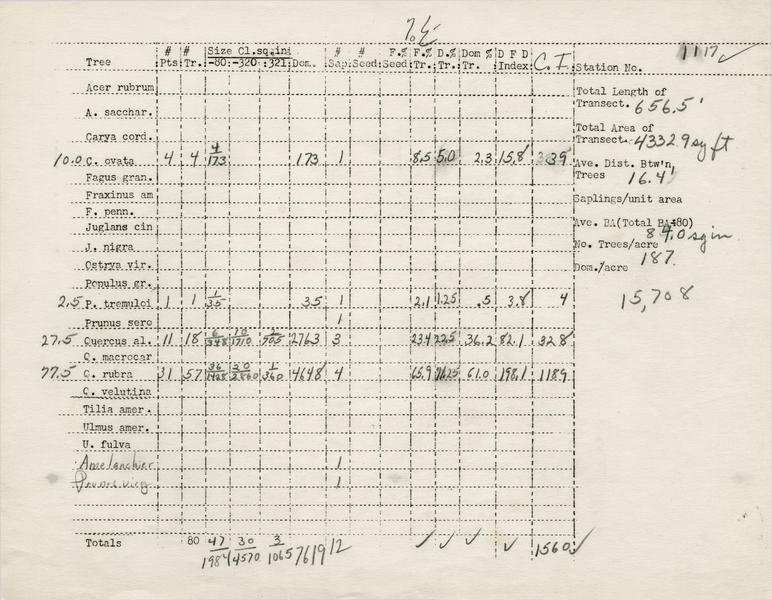 % F
# # Size Cl.sq.in: # # F.% F.% D.% Dom % D F D
Tree Pts: Tr.: -80: -320: :321: Dom. Sap: Seed: Seed Tr.: Tr.: Tr. Index: C. I. Station No. 1117 ✓
Acer rubrum Total Length of
Transect. 656.5'
A. sacchar.
Carya cord. Total Area of
Transect. 4332.9 sq ft
10.0 C. ovata 4 4 4/173 173 1 8.5 5.0 2.3 15.8 39
Ave. Dist. Btw'n,
Trees 16.4'
Fagus gran.
Fraxinus am Saplings/unit area
F. penn.
Juglans cin Ave. BA(Total BA÷80)
84.0 sq in
J. nigra No. Trees/acre
187
Ostrya vir. Dom./acre
15,708
Populus gr.
2.5 P. tremuloi 1 1 1/35 35 1 2.1 1.25 .5 3.8 4
Prunus sero 1
27.5 Quercus al. 11 18 6/348 10/1710 2/705 2763 3 23.4 22.5 36.2 82.1 328
Q. macrocar
77.5 Q. rubra 31 57 36/1428 20/2860 1/360 4648 4 65.9 71.25 61.0 198.1 1189
Q. velutina
Tilia amer.
Ulmus amer.
U. fulva
Amelanchier 1
Prunus virg. 1
Totals 80 47/1984 30/4570 3/1065 7619 12 ✓ ✓ ✓ ✓ 1560 ✓